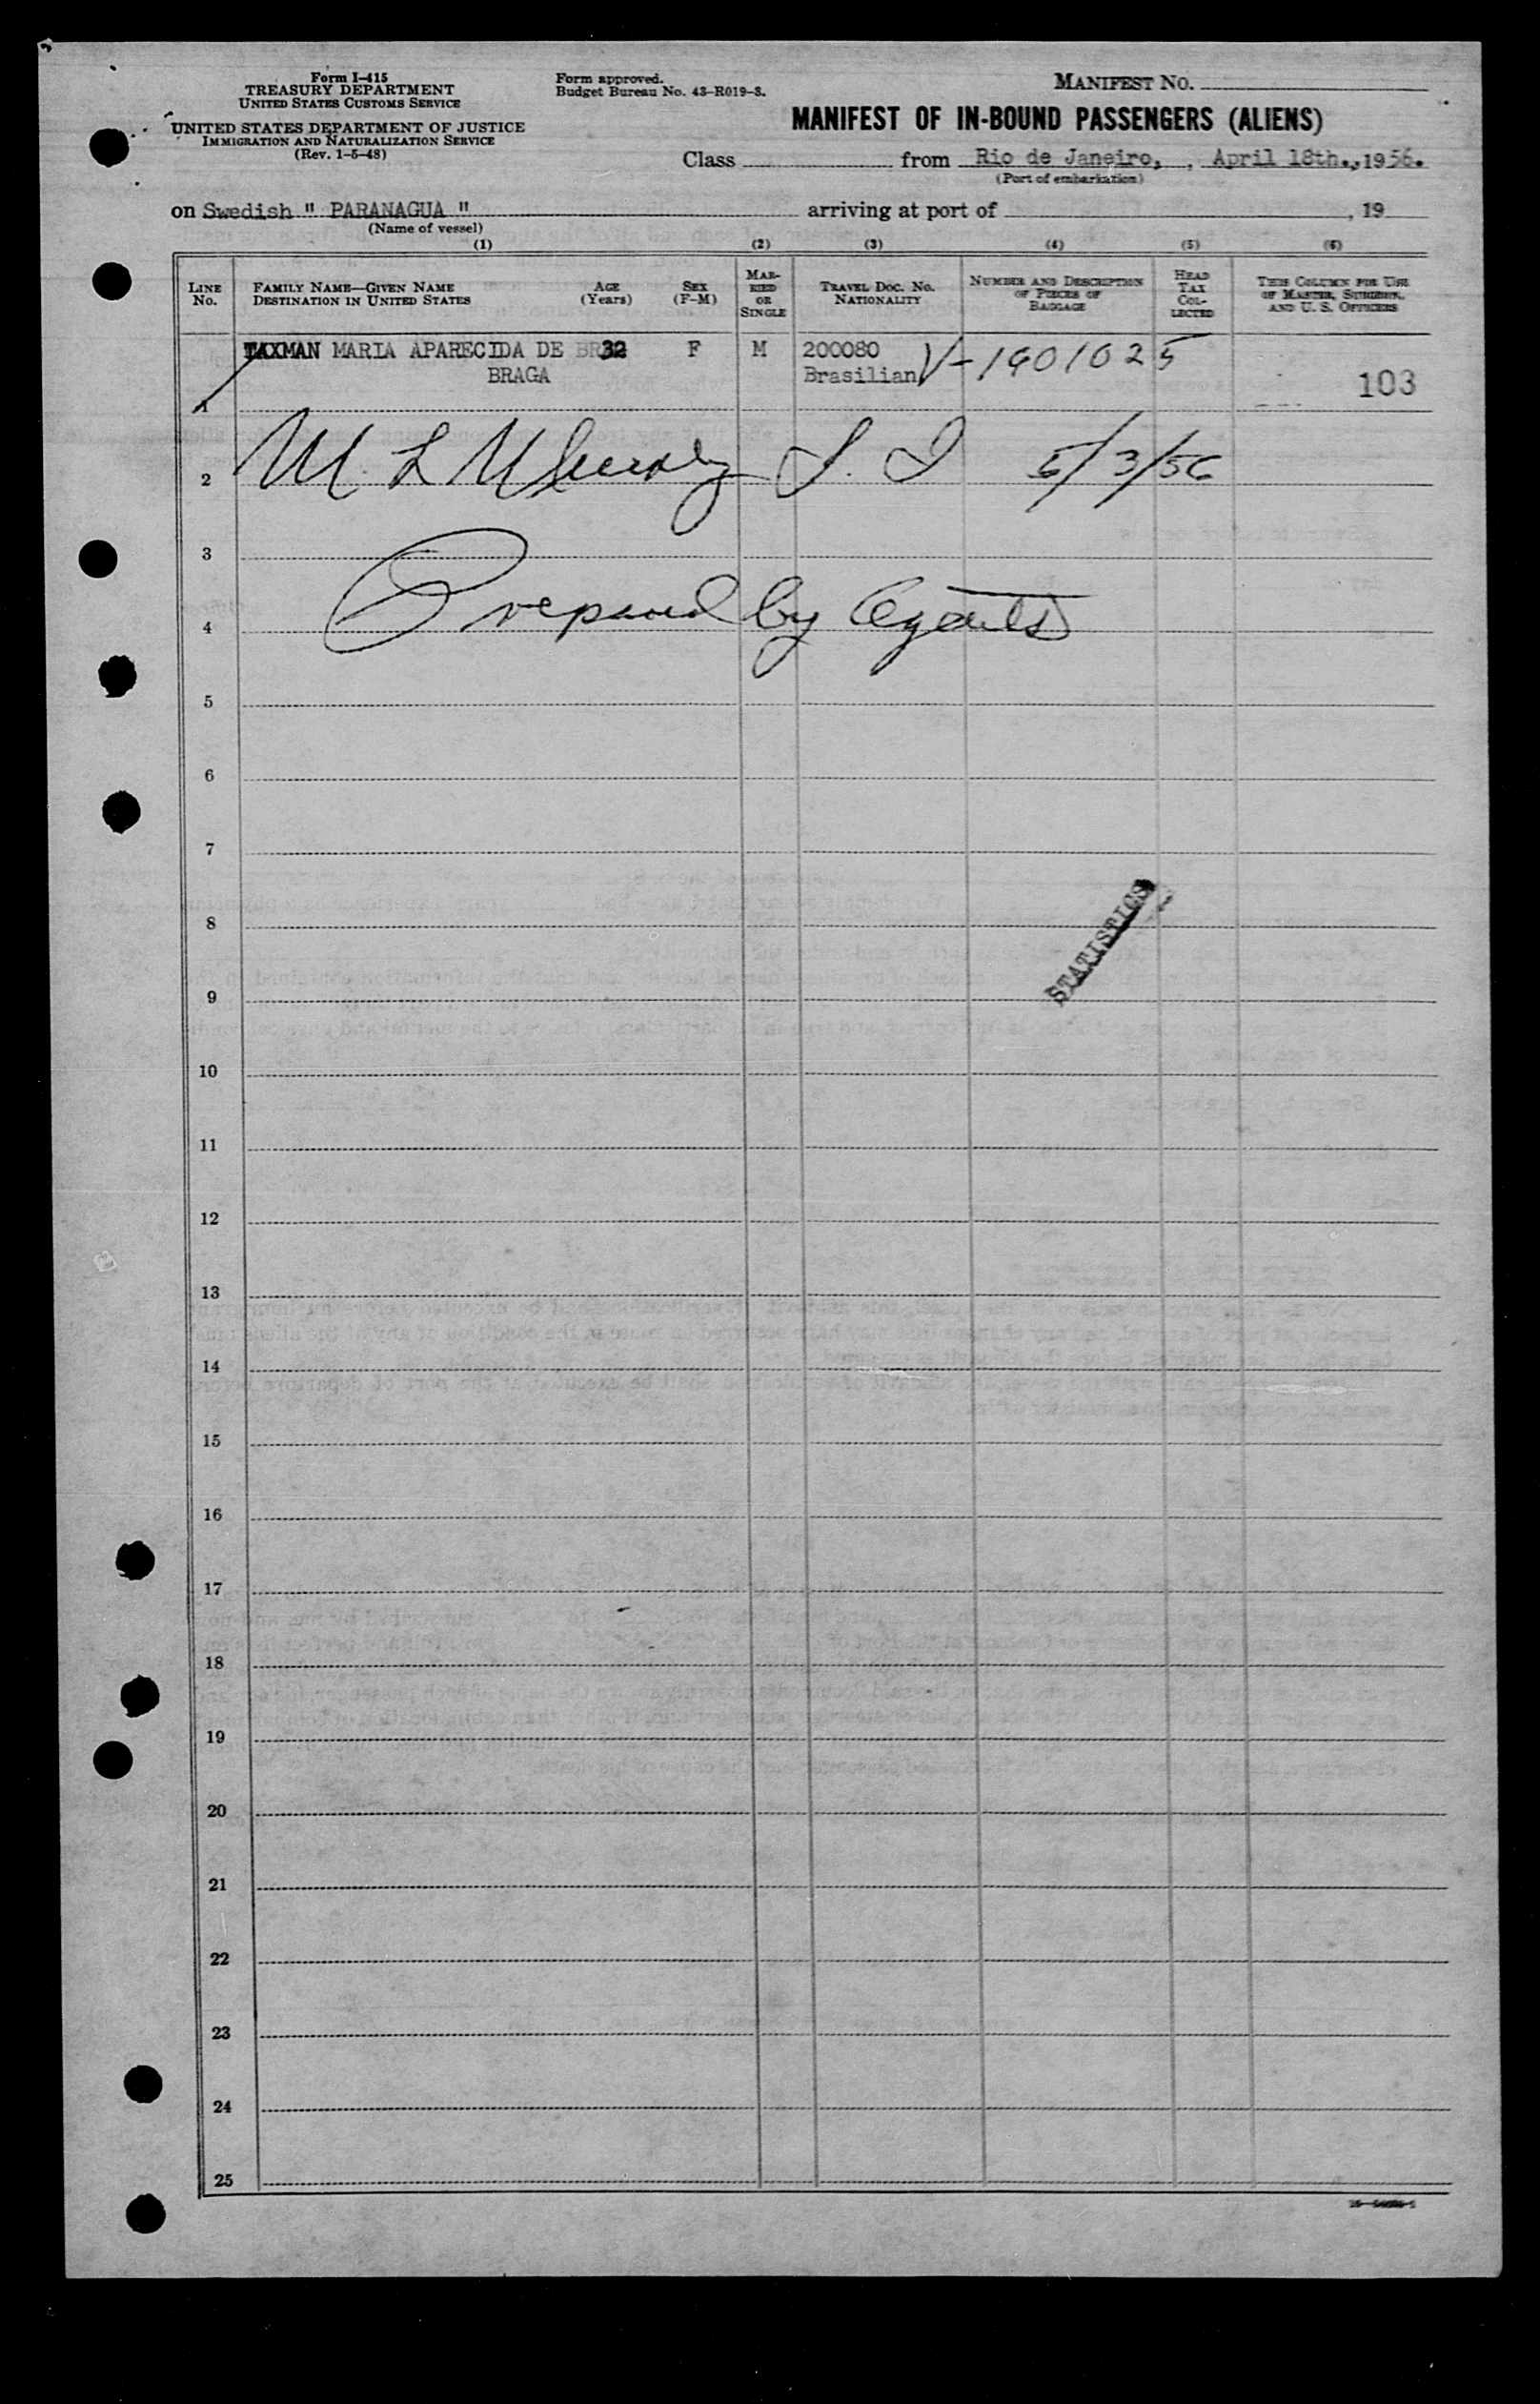 Form I-415
TREASURY DEPARTMENT
UNITED STATES CUSTOMS SERVICE
UNITED STATES DEPARTMENT OF JUSTICE
IMMIGRATION AND NATURALIZATION SERVICE
(Rev. 1-5-48)
Form approved.
Budget Bureau No. 43-R019-3.
MANIFEST NO.
MANIFEST OF IN-BOUND PASSENGERS (ALIENS)
Class from Rio de Janeiro, , April 18th., 1956.
(Port of embarkation)
on Swedish " PARANAGUA " arriving at port of , 19
(Name of vessel)
(1) (2) (3) (4) (5) (6)
LINE No. FAMILY NAME—GIVEN NAME DESTINATION IN UNITED STATES AGE (Years) SEX (F-M) MARRIED OR SINGLE TRAVEL DOC. NO. NATIONALITY NUMBER AND DESCRIPTION OF PIECES OF BAGGAGE HEAD TAX COLLECTED THIS COLUMN FOR USE OF MASTER, SURGEON, AND U. S. OFFICERS
TAXMAN MARIA APARECIDA DE 32 F M 200080 V-1901025
BRAGA Brasilian 103
1
M L S. I 5/3/56
2
3
Prepared by Agents
4
5
6
7
8
STATISTICS
9
10
11
12
13
14
15
16
17
18
19
20
21
22
23
24
25